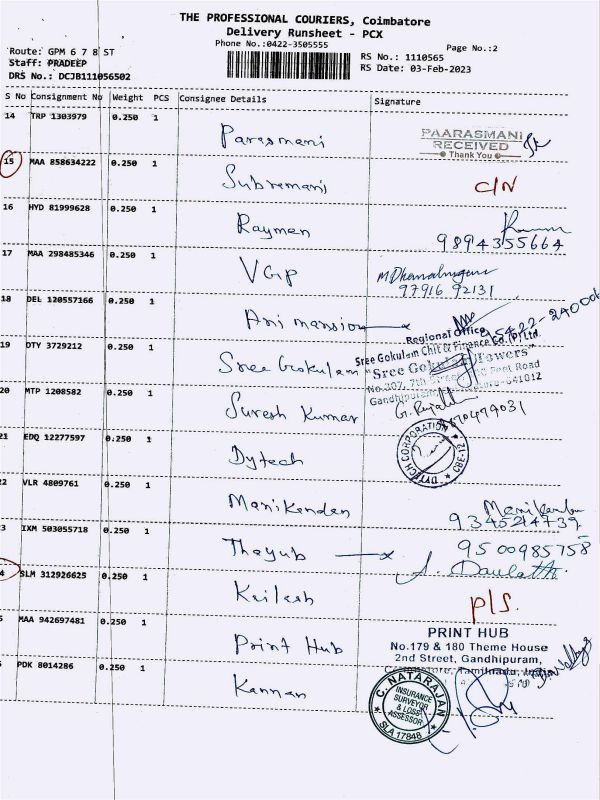 THE PROFESSIONAL COURIERS, Coimbatore
Delivery Runsheet - PCX
Phone No.:0422-3505555
Page No.:2
Route: GPM 6 7 8 ST
RS No.: 1110565
Staff: PRADEEP
RS Date: 03-Feb-2023
DRS No.: DCJB111056502
S No Consignment No Weight PCS Consignee Details Signature
14 TRP 1303979 0.250 1
Parasmani
PAARASMANI
RECEIVED
Thank You
15 MAA 858634222 0.250 1
Subremani C/N
16 HYD 81999628 0.250 1
Raymen
9894355664
17 MAA 298485346 0.250 1
VGP
97916 92131
18 DEL 120557166 0.250 1
Ani mansion
19 DTY 3729212 0.250 1
Regional Office
Sree Gokulam Chit & Finance Co. (P) Ltd.
Sree Gokulam "Sree Gokulam Towers"
20 MTP 1208582 0.250 1
Suresh Kumar
21 EDQ 12277597 0.250 1
Dytech
DYTECH CORPORATION
22 VLR 4809761 0.250 1
Manikandan
IXM 503055718 0.250 1
Thayub x 9500985758
SLM 312926625 0.250 1
Kailash P/S.
MAA 942697481 0.250 1
Print Hub
PRINT HUB
No.179 & 180 Theme House
2nd Street, Gandhipuram,
PDK 8014286 0.250 1
Kannan
C. NATARAJAN
INSURANCE
SURVEYOR
& LOSS
ASSESSOR
SLA 17848